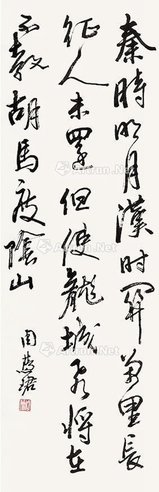 秦時明月漢時關萬里長
征人未還但使龍城飛將在
不教胡馬度陰山
周慧珺